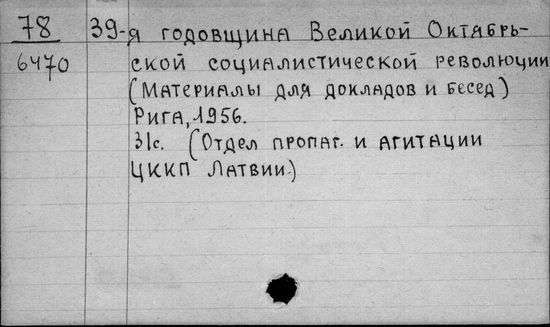 78 39-я годовщина Великой Октябрь-
6470 ской социалистической революции
(Материалы для докладов и бесед)
Рига, 1956.
31с. (Отдел пропаг. и агитации
ЦККП Латвии.)